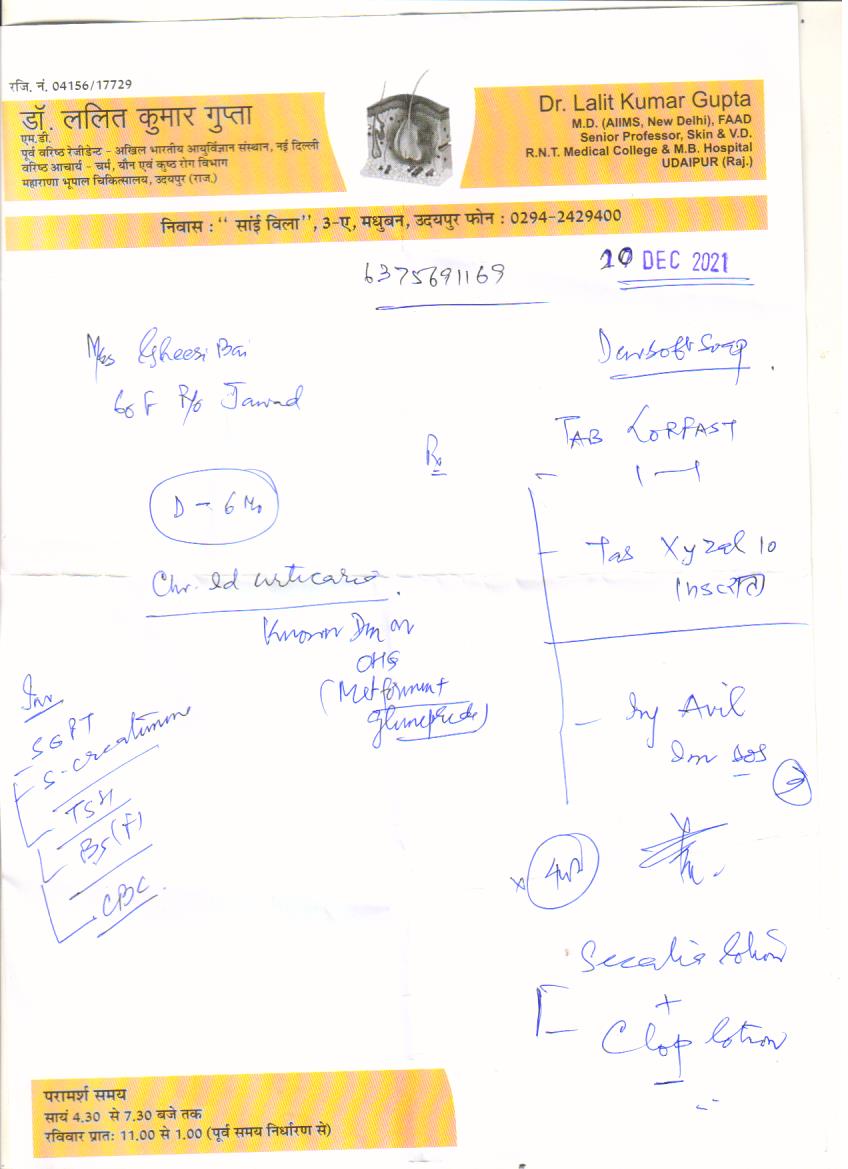 रजि. नं. 04156/17729
डॉ. ललित कुमार गुप्ता
एम.डी.
पूर्व वरिष्ठ रेजीडेन्ट - अखिल भारतीय आयुर्विज्ञान संस्थान, नई दिल्ली
वरिष्ठ आचार्य - चर्म, यौन एवं कुष्ठ रोग विभाग
महाराणा भूपाल चिकित्सालय, उदयपुर (राज.)
Dr. Lalit Kumar Gupta
M.D. (AIIMS, New Delhi), FAAD
Senior Professor, Skin & V.D.
R.N.T. Medical College & M.B. Hospital
UDAIPUR (Raj.)
निवास : “ सांई विला”, 3-ए, मधुबन, उदयपुर फोन : 0294-2429400
6375691169
10 DEC 2021
Gheesi Bai
60 F R/o Jawad
D - 6 Mo
Chr. Id urticaria.
Known Dm on
OHG
(Metformin +
glimepride)
Inv
SGPT
S-creatinine
TSH
BS(F)
CBC
Rx
Soap
TAB LORFAST
1 — 1
Tab Xyzal 10
रात
Inj Avil
Im sos
x
lotion
+
Clop lotion
परामर्श समय
सायं 4.30 से 7.30 बजे तक
रविवार प्रातः 11.00 से 1.00 (पूर्व समय निर्धारण से)